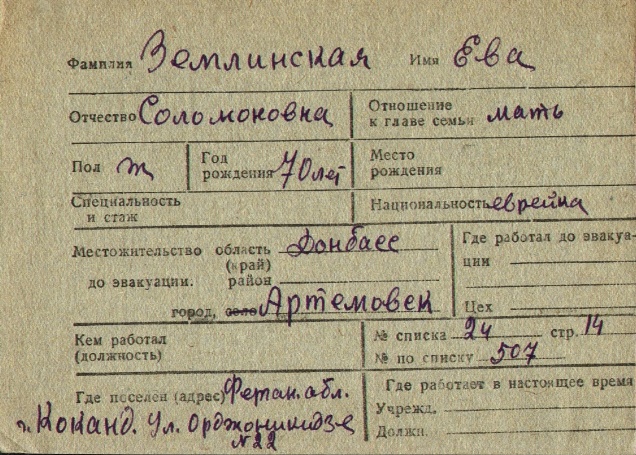 Фамилия Землинская Имя Ева
Отчество Соломоновна Отношение к главе семьи мать
Пол ж Год рождения 70 лет Место рождения
Специальность и стаж Национальность еврейка
Местожительство до эвакуации. область (край) Донбасс
район
город, село Артемовск
Где работал до эвакуа-
ции
Цех
Кем работал (должность)
№ списка 24 стр. 14
№ по списку 507
Где поселен (адрес) Ферган. обл.
г. Коканд. Ул. Орджоникидзе
№22
Где работает в настоящее время
Учрежд.
Должн.